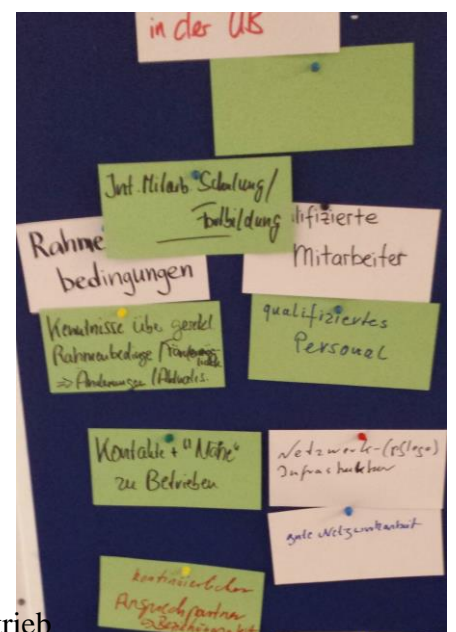 in der UB
Int. Mitarb. Schulung/
Fortbildung
Rahme
bedingungen
lifizierte
Mitarbeiter
Kenntnisse über gesetzl.
Rahmenbedinge /
=> Änderungen / Aktualis.
qualifiziertes
Personal
Kontakte + "Nähe"
zu Betrieben
Netzwerk-
Infrastruktur
gute Netzwerkarbeit
kontinuierlicher
Ansprechpartner
trieb